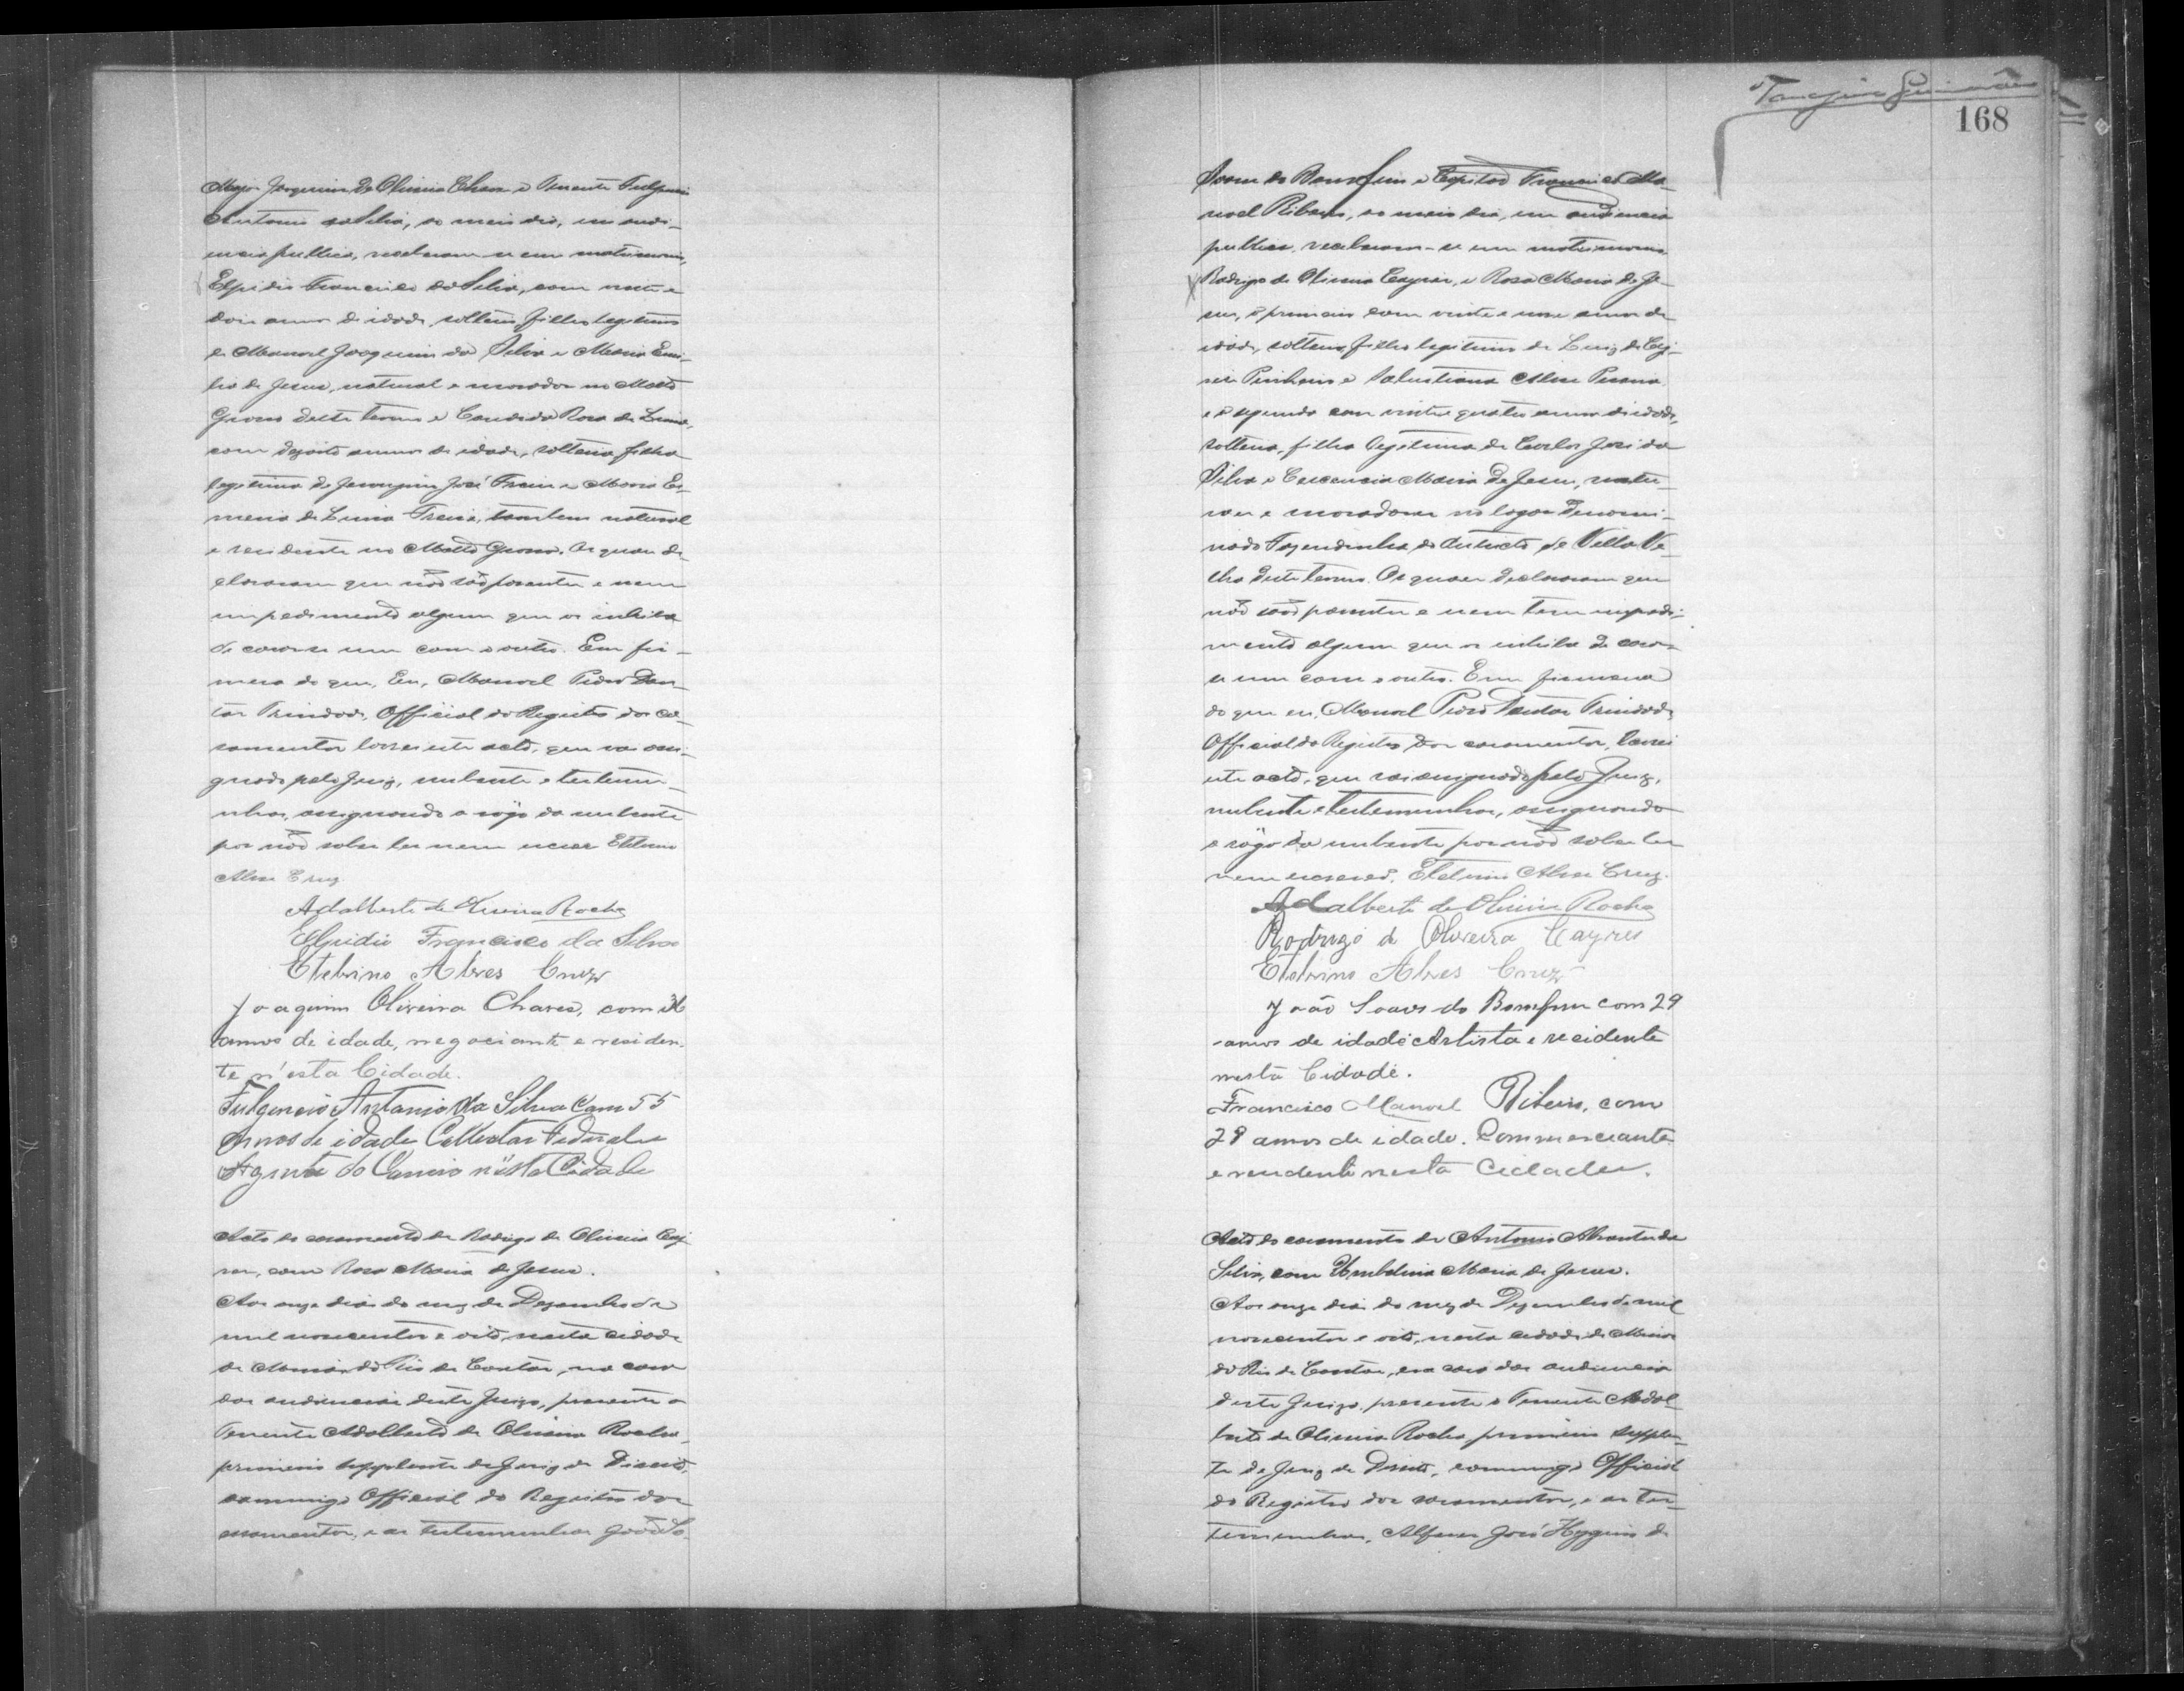 Major Joaquim de Oliveira Chaves e Tenente Fulgencio
Antonio da Silva, ao meio dia, em audi-
encia publica, receberam-se em matrimonio,
Elpidio Francisco da Silva, com vinte e
dois annos de idade, solteiro, filho legitimo
de Manoel Joaquim da Silva e Maria Emi-
lia de Jesus, natural e morador no Matto
Grosso deste termo e Candida Rosa de
com dezoito annos de idade, solteira, filha
legitima de José Freire e Maria
de Freire, tambem natural
e residente no Matto Grosso. Os quaes de-
clararam que não são parentes e nem
impedimento algum que os inhiba
de casar-se um com o outro. Em fir-
mesa do que, Eu, Manoel Pedro Dan-
tas Trindade, Official do Registro dos ca-
samentos lavrei este acto, que vai assi-
gnado pelo Juiz, nubente e testemu-
nhas, assignando a rôgo da nubente
por não saber ler nem escrever Etelvino
Alves Cruz.
Adalberto de Oliveira Rocha
Elpidio Francisco da Silva
Etelvino Alves Cruz
Joaquim Oliveira Chaves, com
annos de idade, negociante e residen-
te n'esta Cidade.
Fulgencio Antonio da Silva com 55
annos de idade Collector Federal e
Agente do Correio n'esta Cidade
Acto do casamento de Rodrigo de Oliveira Cay-
res, com Rosa Maria de Jesus.
Aos onze dias do mez de Dezembro de
mil novecentos e oito, nesta cidade
de Minas do Rio de Contas, na casa
das audiencias deste Juizo, presente o
Tenente Adalberto de Oliveira Rocha,
primeiro supplente do Juiz de Direito,
commigo Official do Registro dos
casamentos, e as testemunhas João So-
168
ares do Bomfim e Capitão Francisco Ma-
noel Ribeiro, ao meio dia, em audiencia
publica, receberam-se em matrimonio
Rodrigo de Oliveira Cayres, e Rosa Maria de Je-
sus, o primeiro com vinte e nove annos de
idade, solteiro, filho legitimo de Luiz de
Pinheiro e Salustiana Alves
e a segunda com vinte e quatro annos de idade,
solteira, filha legitima de Carlos José da
Silva e Crescencia Maria de Jesus, natu-
raes e moradores no logar denomi-
nado Fazendinha do districto de Villa Ve-
lha deste termo. Os quaes declararam que
não são parentes e nem tem impedi-
mento algum que os inhiba de casar-
se um com o outro. Em firmeza
do que eu, Manoel Pedro Dantas Trindade,
Official do Registro dos casamentos, lavrei
este acto, que vai assignado pelo Juiz,
nubente e testemunhas, assignando
a rôgo da nubente por não saber ler
nem escrever, Etelvino Alves Cruz.
Adalberto de Oliveira Rocha
Rodrigo de Oliveira Cayres
Etelvino Alves Cruz
João Soares do Bomfim com 29
annos de idade Artista e residente
nesta Cidade.
Francisco Manoel Ribeiro, com
28 annos de idade. Commerciante
e residente nesta Cidade.
Acto do casamento de Antonio Abrantes da
Silva, com Umbelina Maria de Jesus.
Aos onze dias do mez de Dezembro de mil
novecentos e oito, nesta cidade de Minas
do Rio de Contas, em casa das audiencias
deste Juizo, presente o Tenente Adal-
berto de Oliveira Rocha, primeiro supplen-
te do Juiz de Direito, commigo Official
do Registro dos casamentos, e as tes-
temunhas, Alferes José Hygino de